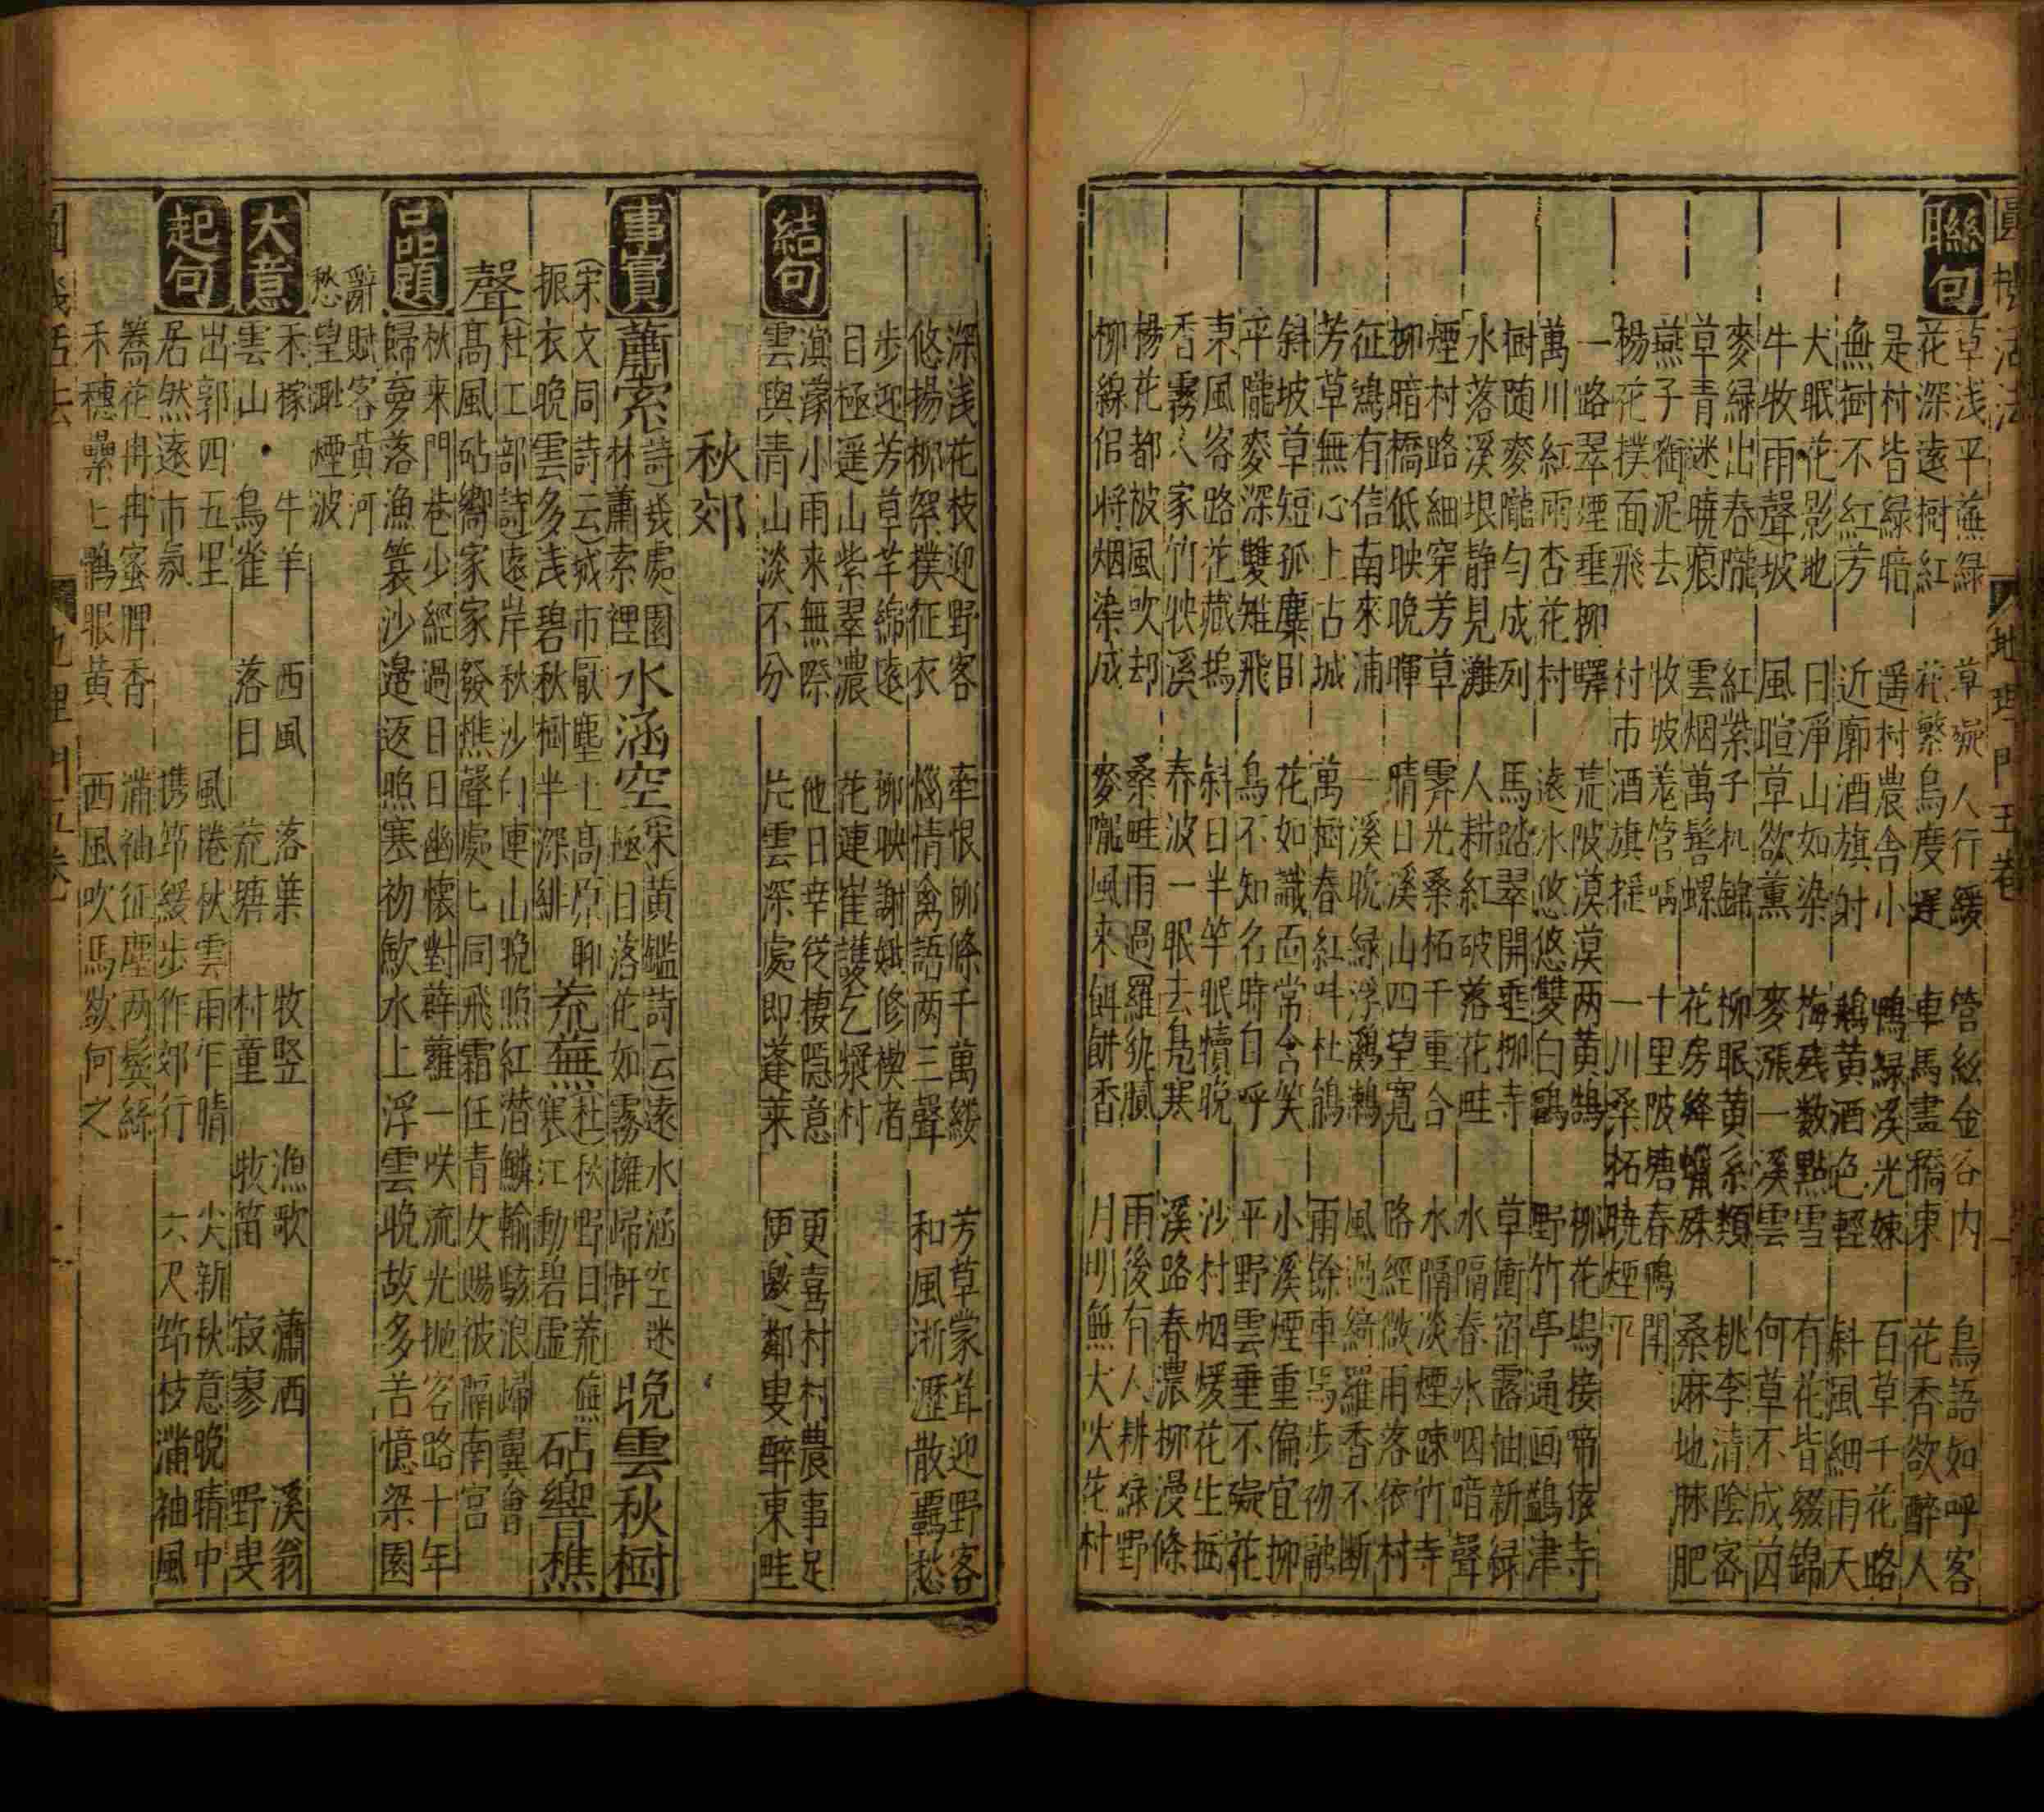 聯句
草浅平蕪綠 草癡人行緩 管絃金谷内 鳥語如呼客
花深遠樹紅 花繁鳥度遲 車馬畫橋東 花香欲醉人
是村皆綠暗 遥村農舍小 鴨綠溪光媡 百草千花路
無樹不紅芳 近廓酒旗射 鵝黄酒色輕 斜風細雨天
犬眠花影地 日淨山如染 梅残数點雪 有花皆綴錦
牛牧雨聲坡 風暄草欲薰 麥漲一溪雲 何草不成茵
麥綠出春隴 紅紫子机錦 柳眼黄系類 桃李清陰宻
草青迷曉痕 雲烟萬髻螺 花房絳蠟殊 桑麻地脉肥
燕子銜泥去 牧坡羗管嗚 十里陂塘春鴨閙
楊花撲面飛 村市酒旗提 一川桑柘曉煙平
一路翠煙垂柳驛 荒陂漠漠两黄鵠 柳花塢接帝後寺
萬川紅雨杏花村 遠水悠悠雙白鷗 野竹亭通画鷁津
樹随麥隴勻成列 馬踏翠開垂柳寺 草衝宿露抽新綠
水落溪垠静見灘 人耕紅破落花畦 水隔春氷咽暗聲
煙村路細穿芳草 霽光桑柘千重合 水隔淡煙踈竹寺
柳暗橋低映晚暉 晴日溪山四望寛 路經微雨落依村
征鴻有信南來浦 一溪晚綠浮鸂鶒 風過綺羅香不断
芳草無心上古城 萬樹春紅呌杜鵑 雨餘車馬步初融
斜坡草短孤麋卧 花如識面常含笑 小溪煙重偏宜柳
平隴麥深雙雉飛 鳥不知名時自呼 平野雲垂不礙花
東風客路花藏塢 斜日半竿眠犢晚 沙村烟煖花生栖
香霧人家竹映溪 春波一眼去鳬寒 溪路春濃柳漫條
楊花都被風吹却 桑畦雨過羅紈膩 雨後有人耕綠野
柳線侶將烟染成 麥隴風來餌餅香 月明無犬吠花村
深浅花枝迎野客 牽恨柳條千萬縷 芳草蒙茸迎野客
悠揚柳絮撲征衣 惱情禽語两三聲 和風淅瀝散羈愁
步迎芳草芊綿遠 柳映謝娥修禊者
日極遥山紫翠濃 花連崔護乞漿村
結句
濵濛小雨来無際 他日幸從棲隠意 更喜村村農事足
雲與青山淡不分 片雲深處即蓬莱 便邀鄰叟醉東畦
秋郊
事實
蕭索 詩幾處園林蕭索裡 水涵空 宋黄鑑詩云遠水涵空迷極日落花如霧擁歸軒 晚雲秋樹
宋文同詩云城市厭塵土高原聊振衣晚雲多浅碧秋樹半深緋 荒蕪 杜秋野日荒蕪寒江動碧虚 砧響樵
聲 杜工部詩遠岸秋沙白連山晚照紅潜鱗輸駭浪歸翼會高風砧響家家發樵聲處匕同飛霜任青女賜彼隔南宫
品題
秋来門巷少經過日日幽懷對薜蘿一咲流光抛客路十年
歸夢落漁簑沙邉返照寒初歛水上浮雲晚故多苦憶梁園
辭賦客黄河
愁望渺煙波
大意
禾稼 牛羊 西風 落葉 牧竪 漁歌 蕭洒 溪翁
雲山 鳥雀 落日 荒塘 村童 牧笛 寂寥 野叟
起句
出郭四五里 風捲秋雲雨乍晴 尖新秋意晚晴中
居然遠市氛 携筇緩步作郊行 六尺筇枝滿袖風
蕎花冉冉蜜脾香 滿袖征塵两鬓絲
禾穗纍匕鸛眼黄 西風吹馬欲何之